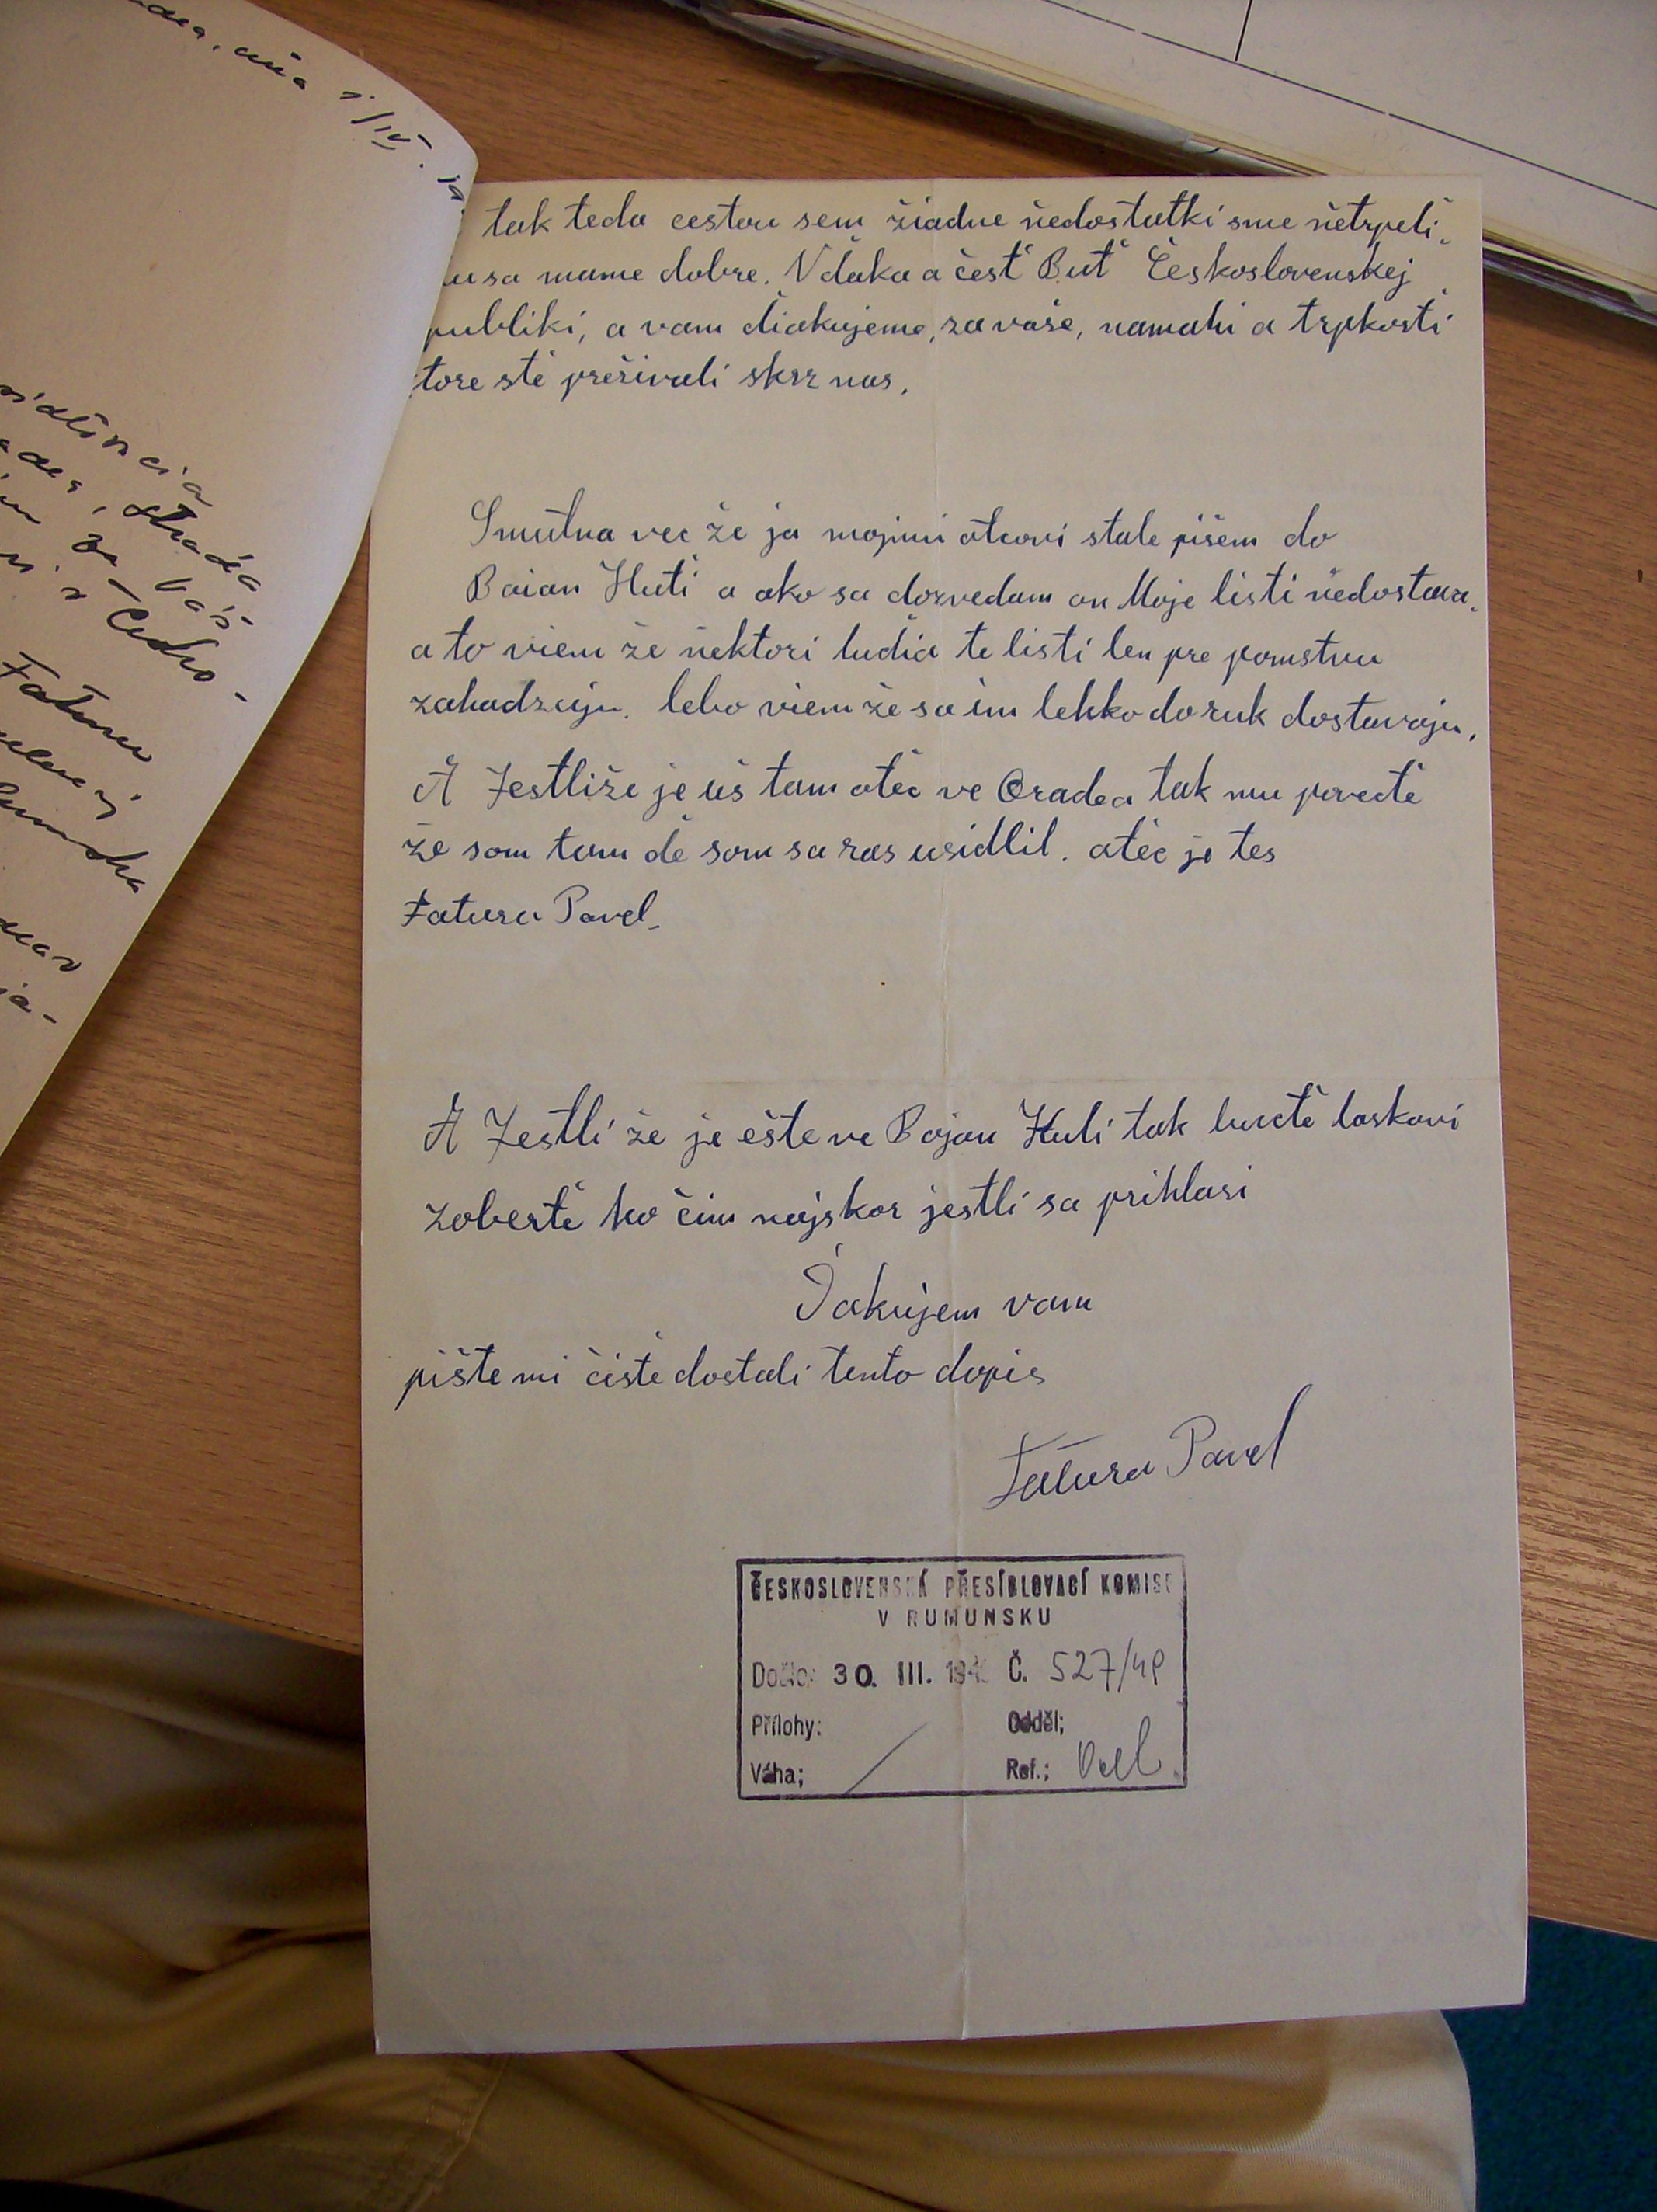 tak teda cestou sem žiadne ňedostatki sme ňetrpeli.
sa mame dobre. Vďaka a česť Buť Československej
publiki, a vam ďiakujeme, za vaše, namahi a trpkosťi
tore sťe preživali skrz nas.
Smutna vec že ja mojmu otcovi stale pišem do
Baian Huti a ako sa dozvedam on Moje listi ňedostava.
a to viem že ňektori ludia te listi len pre pomstvu
zahadzuju. lebo viem že sa im lehko do ruk dostavaju.
A Jestliže je uš tam oťec ve Oradea tak mu povecťe
že som tam ďe som sa ras usidlil. oťec je tes
Fatura Pavel.
A Jestli že je ešte ve Bojan Huti tak bucťe laskavi
zoberťe ho čim najskor jestli sa prihlasi
Ďakujem vam
pište mi čiste dostali tento dopis
Fatura Pavel
ČESKOSLOVENSKÁ PŘESÍDLOVACÍ KOMISE
V RUMUNSKU
Došlo: 30. III. 194 Č. 527/49
Přílohy: Odděl;
Váha; Ref.;
j/IV.
strada
za Váš
Fatura